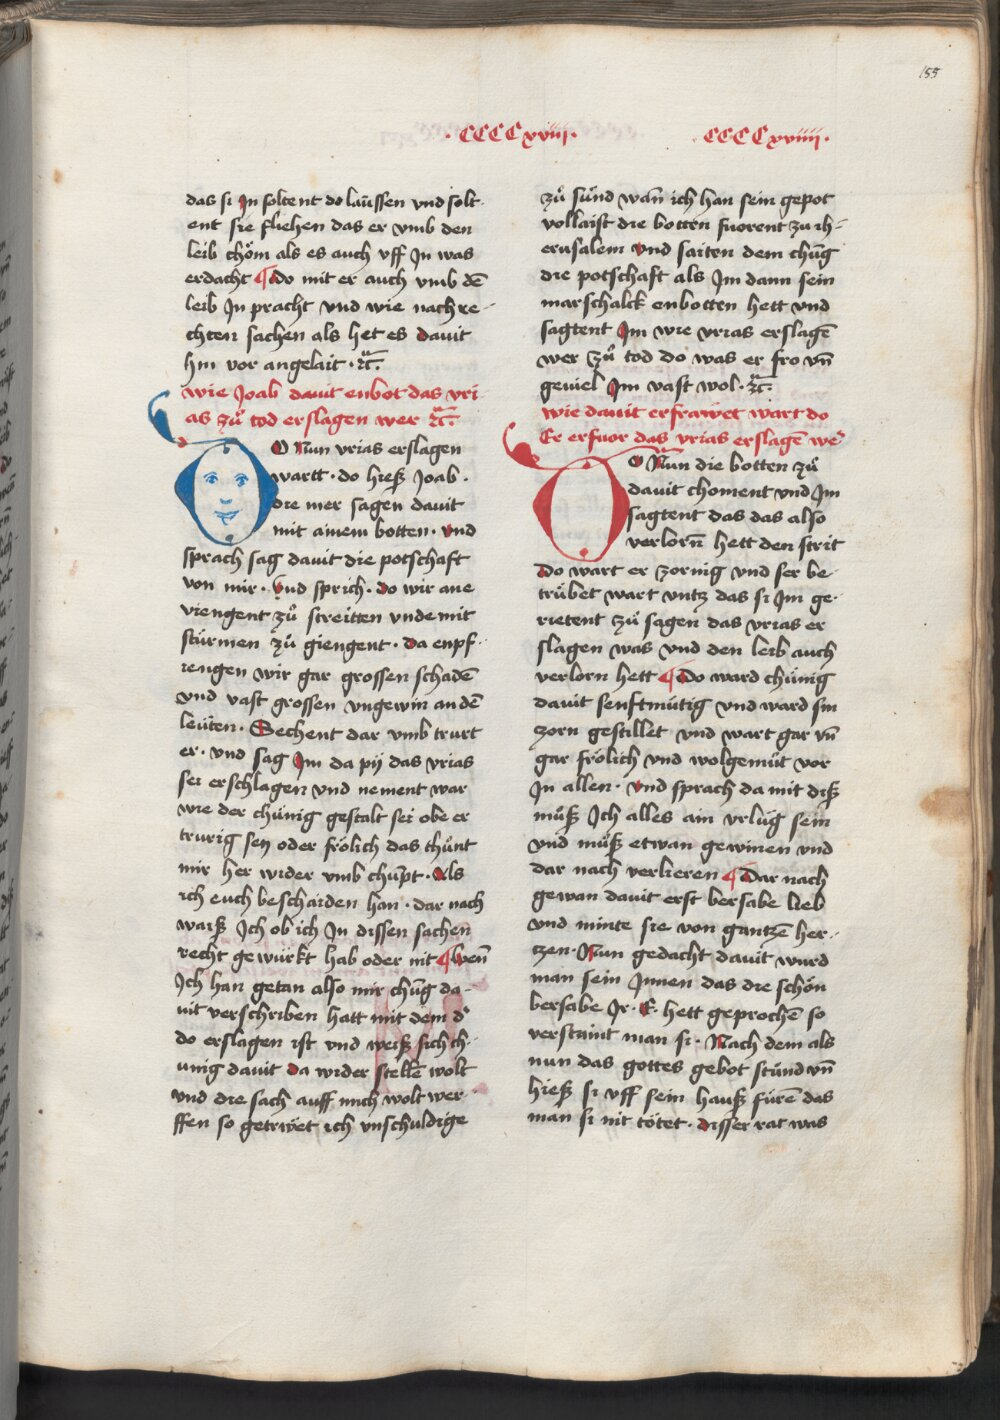 155
· CCCCxviii ·
CCCCxviiii ·
das si Jn soltent do laussen vnd solt
ent sie fliehen das er vmb den
leib chöm als es auch vff Jn was
erdacht ¶ do mit er auch vmb dē
leib Jn pracht vnd wie nach re-
chten sachen als het es dauit
hin vor angelait · ꝛc̄.
wie Joab dauit enbot das vri
as zů tod erslagen wer ꝛc̄.
DO Nun vrias erslagen
wartt · do hieß Joab ·
die mer sagen dauit
mit ainem botten · vnd
sprach sag dauit die potschaft
von mir · vnd sprich · do wir ane
viengent zů streitten vnde mit
stürmen zů giengent · da enpf-
iengen wir gar grossen schadē
vnd vast grossen vngewin an dē
leüten · Sechent dar vmb trurt
er · vnd sag Jm da pij das vrias
sei erschlagen vnd nement war
wie der chünig gestalt sei obe er
trurig sey oder frölich das chůnt
mir her wider vmb chūpt · Als
ich euch beschaiden han · dar nach
waiß Ich ob ich Jn dissen sachen
recht gewürkt hab oder nit ¶ wen̄
Ich han getan also mir chūg da-
uit verschriben hatt mit dem d'
do erslagen ist vnd weiß sich ch-
unig dauit da wider stellē wolt
vnd die sach auff mich wolt wer
ffen so getrwet ich vnschuldige
zů sünd wan̄ ich han sein gepot
vollaist die botten fuorent zu ih-
erusalem vnd saiten dem chūg
die potschaft als Jm dann sein
marschalck enbotten hett vnd
sagtent Jm wie vrias erslagē
wer zů tod do was er fro vn̄
geuiel Jm vast wol · ꝛc̄.
wie dauit erfrawet wart do
Er erfuor das vrias erslagē we'
DO Nun die botten zů
dauit choment vnd Jm
sagtent das das also
verlorn̄ hett den strit
Do wart er zornig vnd ser be-
trübet wart vntz das si Jm ge-
rietent zů sagen das vrias er
slagen was vnd den leib auch
verlorn hett ¶ Do ward chünig
dauit senftmütig vnd ward sin
zorn gestillet vnd wart gar vn̄
gar frölich vnd wolgemůt vor
Jn allen · vnd sprach da mit diß
můß Ich alles ain vrlüg sein
vnd můß etwan gewinen vnd
dar nach verlieren ¶ Dar nach
gewan dauit erst bersabe lieb
vnd minte sie von gantzē her-
tzen · Nun gedacht dauit wurd
man sein Jnnen das die schön
bersabe Jr · E · hett geprochē so
verstaint man si · Nach dem als
nun das gottes gebot stůnd vn̄
hieß si vff sein hauß fürē das
man si nit tötet · disser rat was